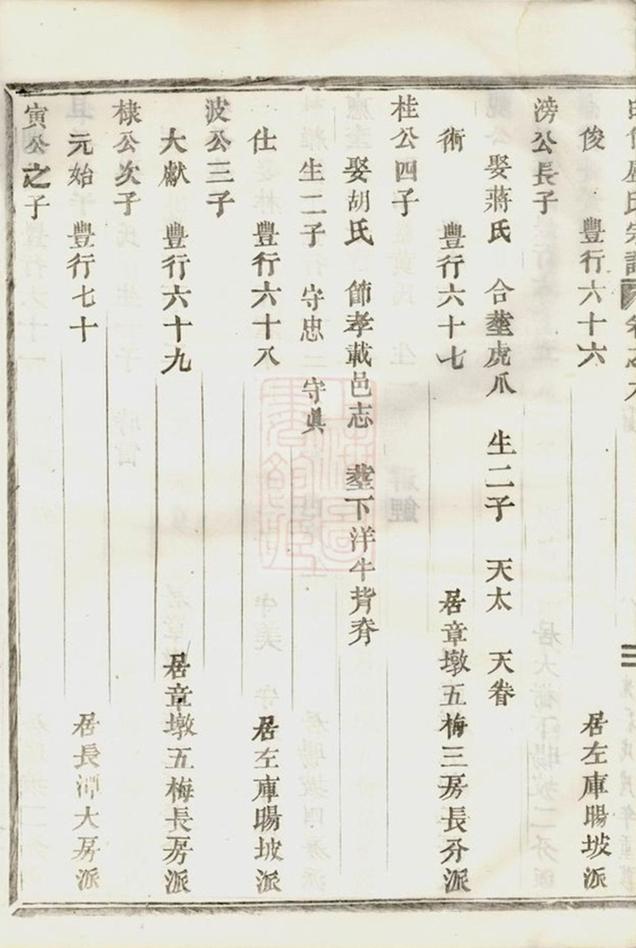 盧氏宗譜
俊 豐行六十六 居左庫暘坡派
滂公長子
娶蔣氏 合塟虎爪 生二子 天太 天眷
術 豐行六十七 居章墩五梅三房長分派
桂公四子
娶胡氏 節孝載邑志 塟下洋牛背脊
生二子 守忠 守眞
仕 豐行六十八 居左庫暘坡派
波公三子
大獻 豐行六十九 居章墩五梅長房派
棣公次子
元始 豐行七十 居長潭大房派
寅公之子